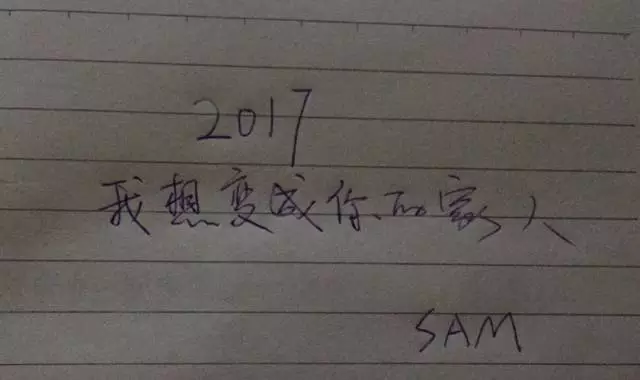 2017
我想变成你的家人
SAM